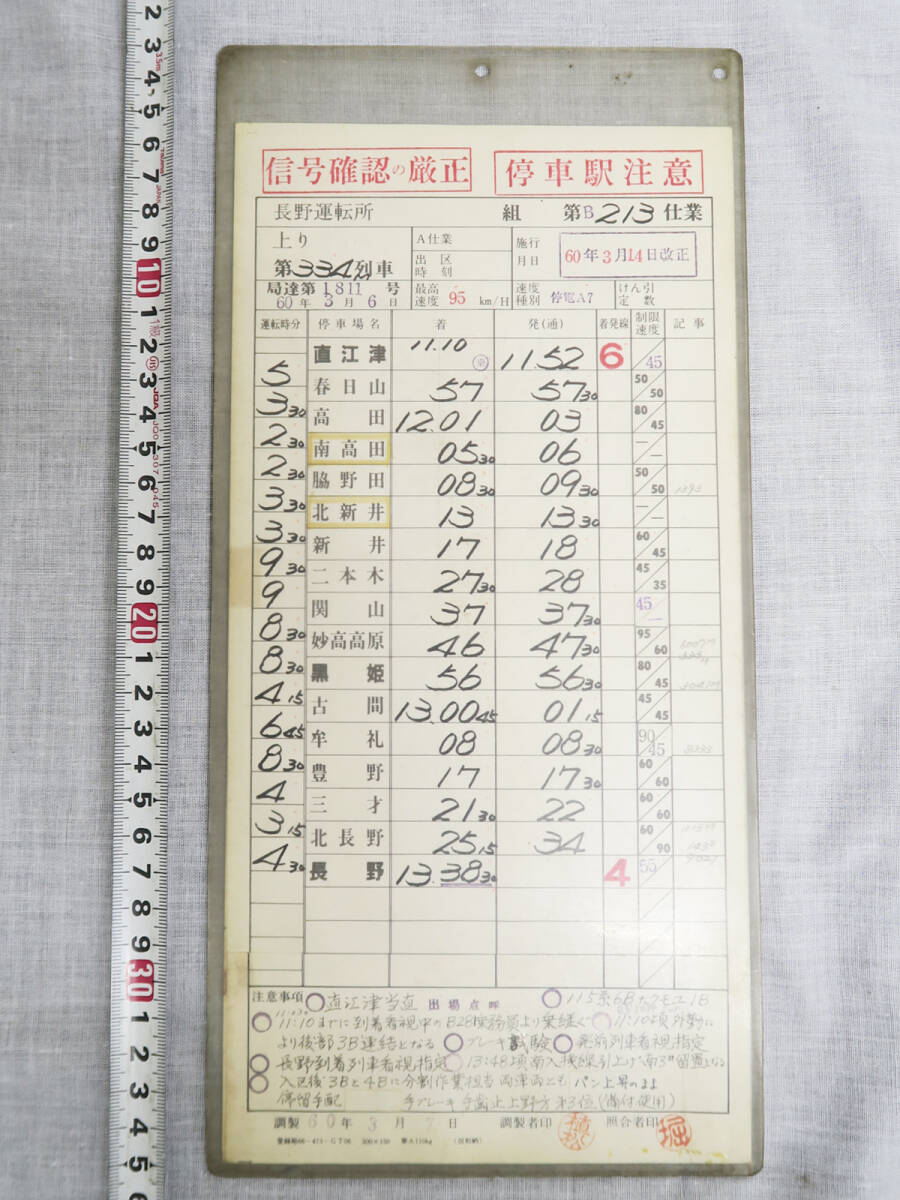 信号確認の厳正 停車駅注意
長野運転所 組 第B213仕業
上り A仕業 施行月日 60年3月14日改正
第334M列車 出区時刻
局達第1811号 最高速度 95 km/H 速度種別 停電A7 けん引定数
60年3月6日
運転時分 停車場名 着 発(通) 着発線 制限速度 記事
直江津 11.10 11.52 6 45
5 春日山 57 57 30 50/50
3 30 高田 12.01 03 80/45
2 30 南高田 05 30 06 —/—
2 30 脇野田 08 30 09 30 50/50
3 30 北新井 13 13 30 —/—
3 30 新井 17 18 60/45
9 30 二本木 27 30 28 45/35
9 関山 37 37 30 45/—
8 30 妙高高原 46 47 30 95/60
8 30 黒姫 56 56 30 80/45
4 15 古間 13.00 45 01 15 45/45
6 45 牟礼 08 08 30 90/45
8 30 豊野 17 17 30 60/60
4 三才 21 30 22 60/60
3 15 北長野 25 15 34 60/90
4 30 長野 13.38 30 4 55
注意事項 直江津当直 出場点呼 115系6B クモユ1B
11:10までに到着看視中のB28乗務員より乗継ぐ 11:10頃
より後部3B連結となる ブレーキ試験 発前列車看視指定
長野到着列車看視指定 13:48頃南入換線引上げ南3 留置となる
入区後3Bと4Bに分割作業担当 両津両とも パン上昇のまま
停留手配 手ブレーキ手歯止上野方 第3位(備付使用)
調製 60年3月7日 調製者印 植松 照合者印 堀
300×150